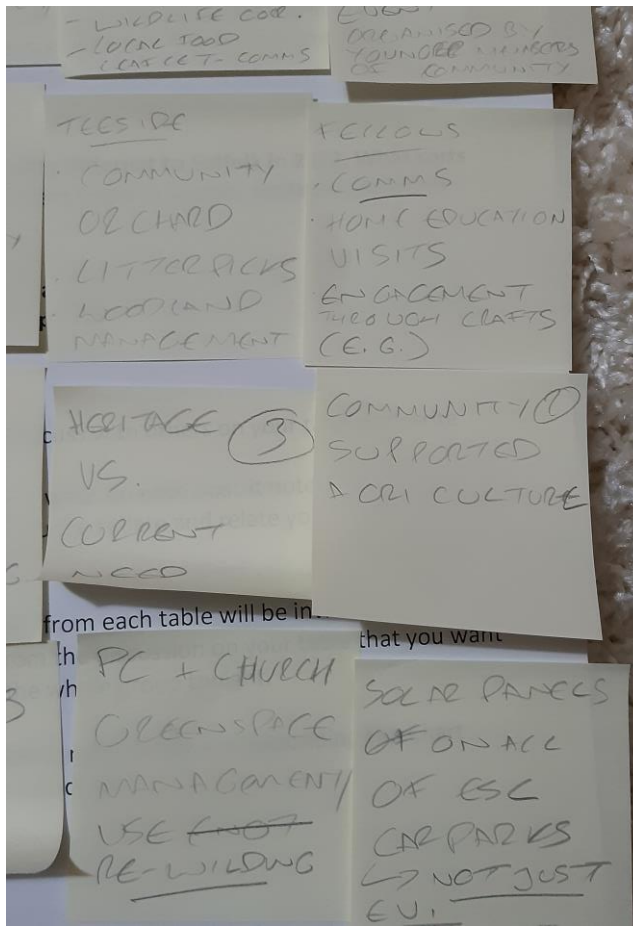 - WILDLIFE COR.
- LOCAL FOOD
LEAFLET - COMMS
EVENT
ORGANISED BY
YOUNGER MEMBERS
OF COMMUNITY
TEESIDE
· COMMUNITY
ORCHARD
· LITTERPICKS
· WOODLAND
MANAGEMENT
FELLOWS
· COMMS
· HOME EDUCATION
VISITS
ENGAGEMENT
THROUGH CRAFTS
(E.G.)
HERITAGE
VS.
CURRENT
NEED
3
COMMUNITY 1
SUPPORTED
AGRI CULTURE
from each table will be in
that you want
PC + CHURCH
GREENSPACE
MANAGEMENT/
USE (NOT
RE-WILDING
3
SOLAR PANELS
OF ON ALL
OF ESC
CAR PARKS
↳ NOT JUST
EV!